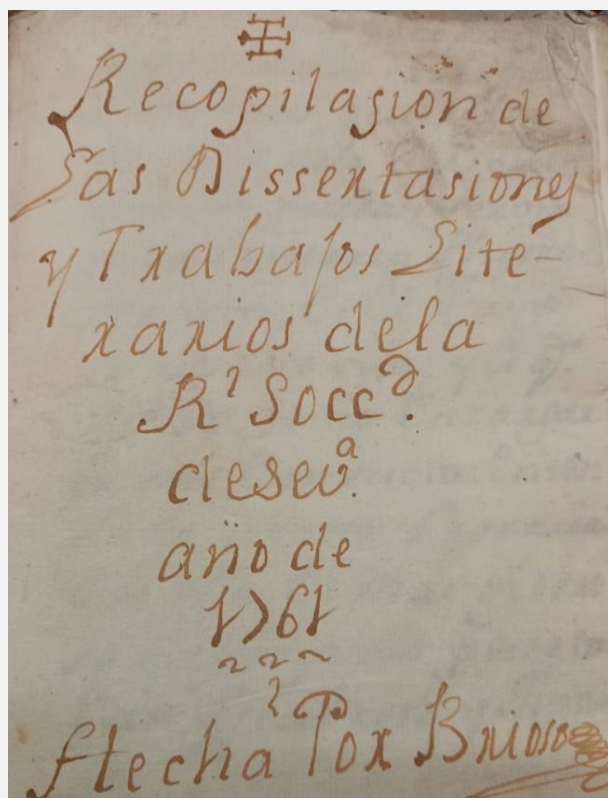 Recopilasion de
Las Dissertasiones
y Trabajos Lite-
rarios de la
Rl Soccd.
de seva.
año de
1761
ffecha Por Brioso